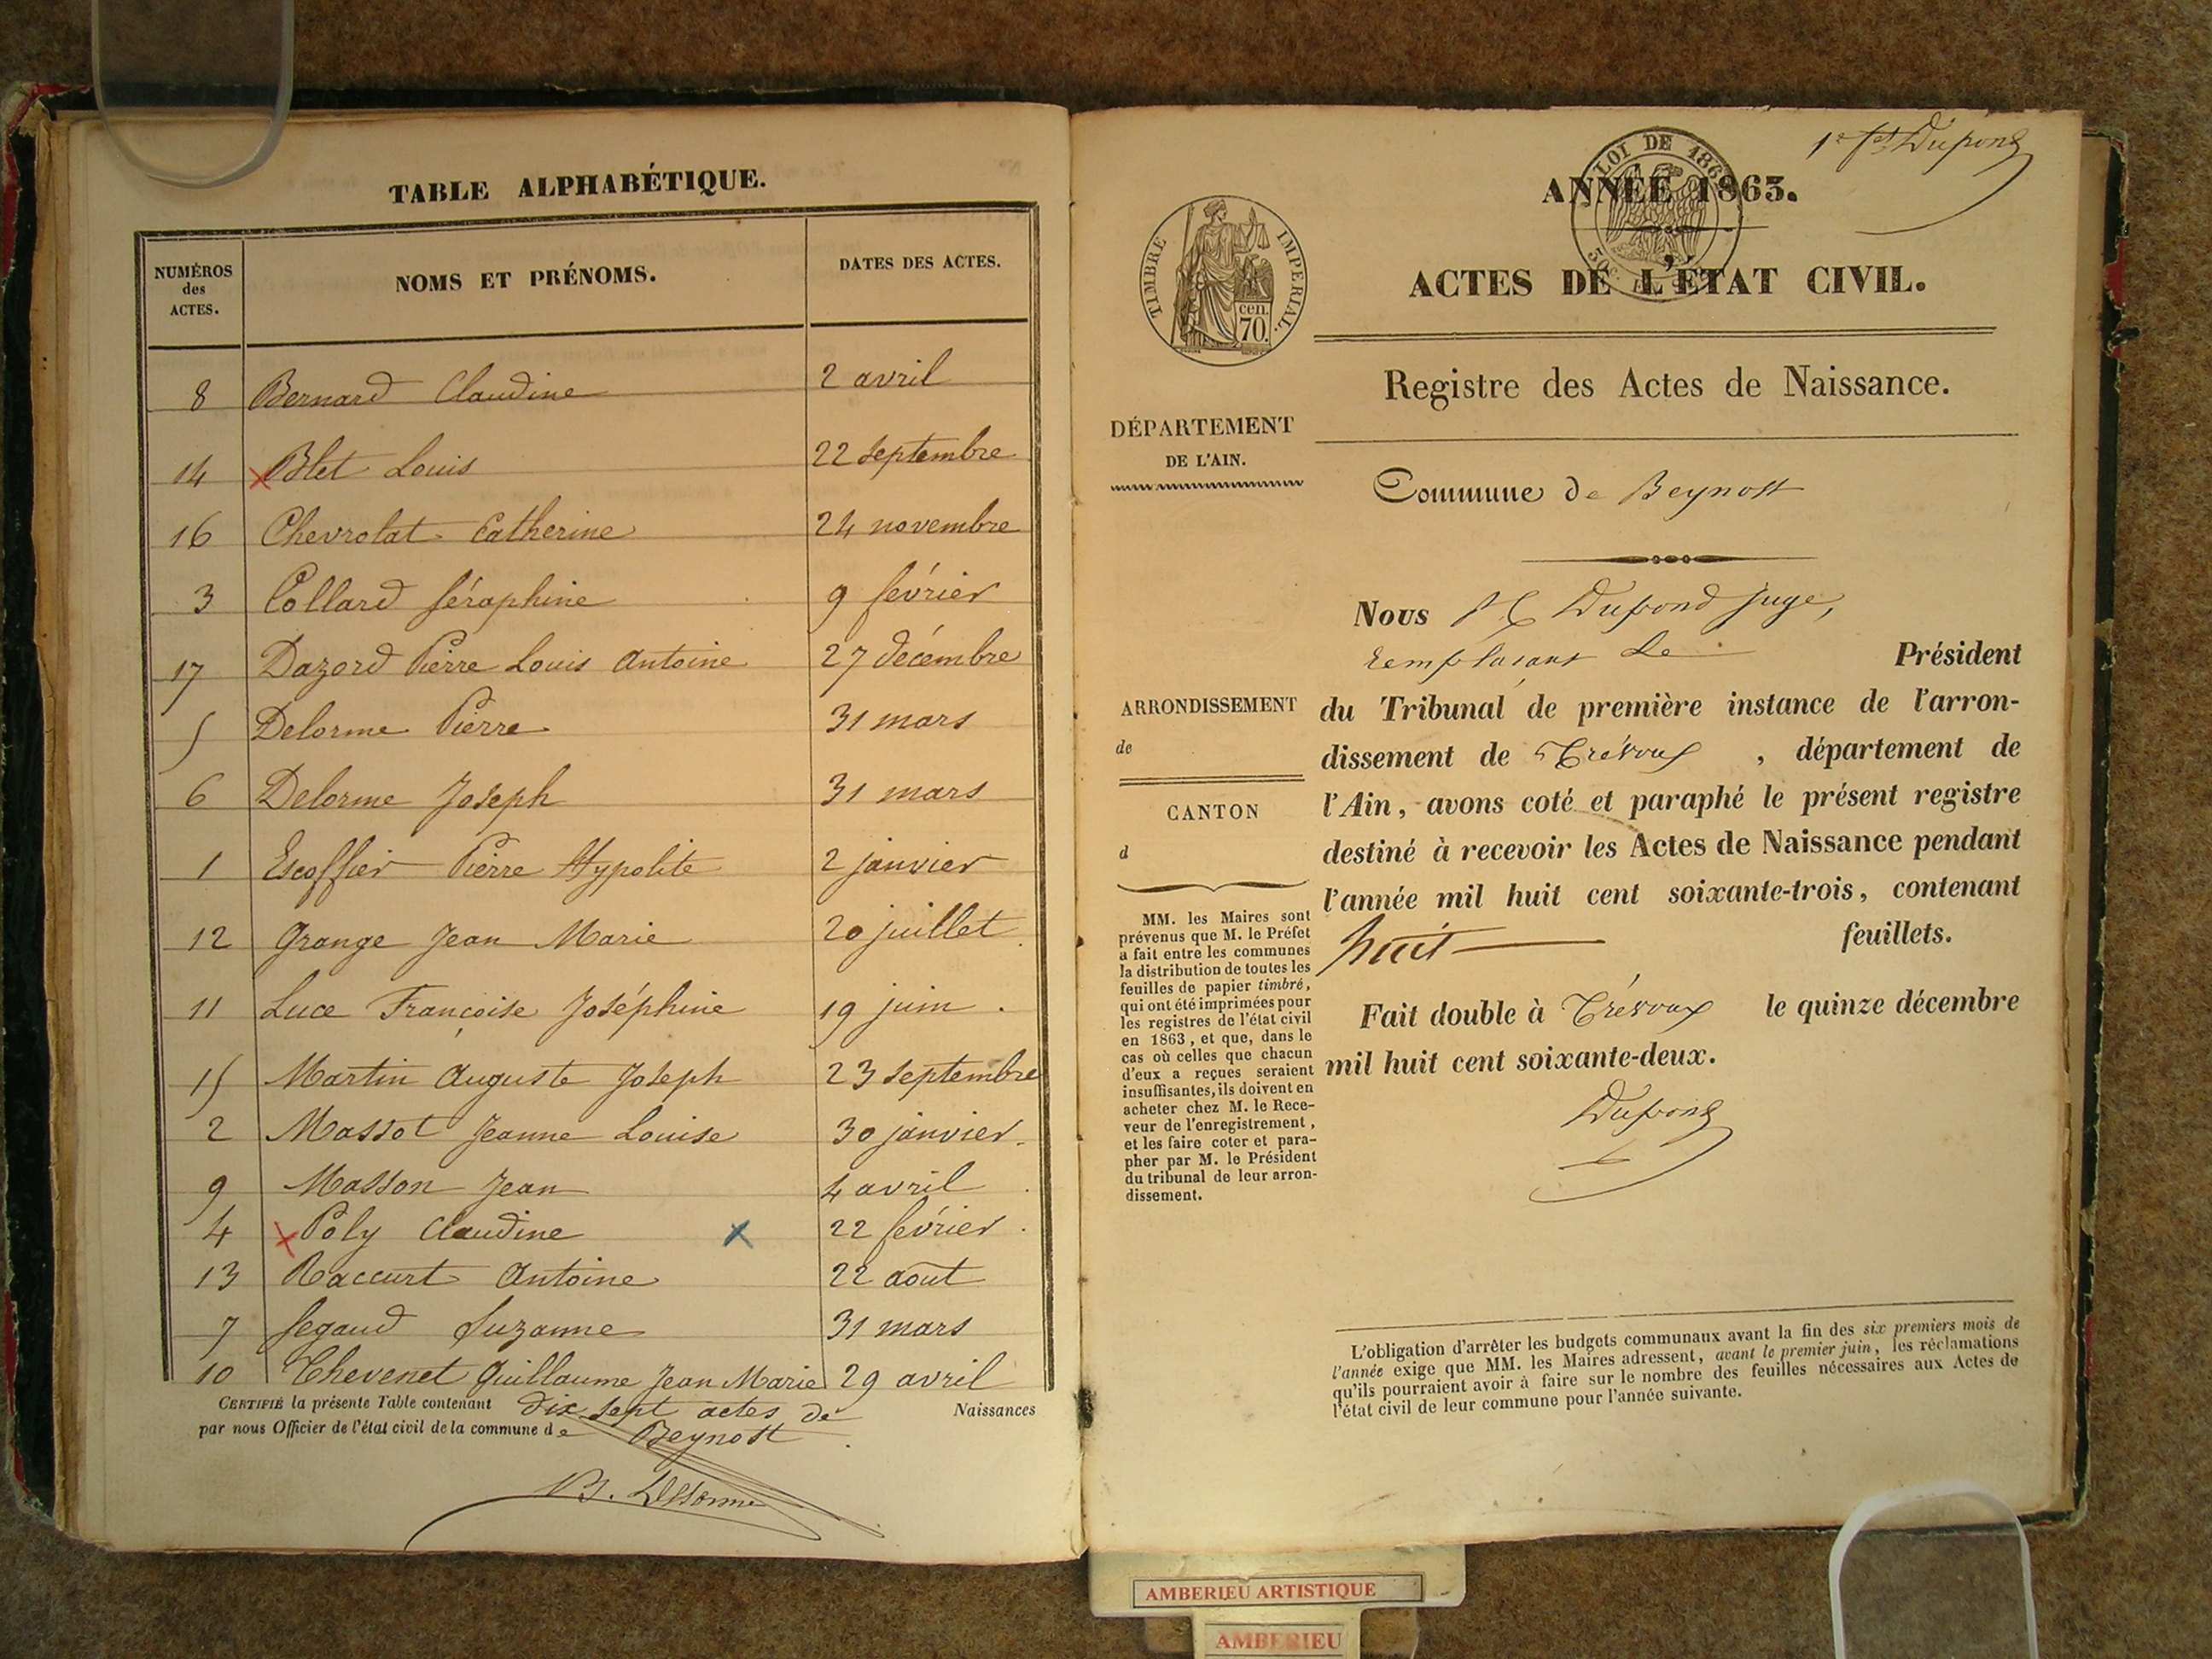 TABLE ALPHABÉTIQUE.
NUMÉROS des ACTES. NOMS ET PRÉNOMS. DATES DES ACTES.
8 Bernard Claudine 2 avril
14 Blet Louis 22 septembre
16 Chevrolat Catherine 24 novembre
3 Collard Séraphine 9 février
17 Dazord Pierre Louis Antoine 27 décembre
5 Delorme Pierre 31 mars
6 Delorme Joseph 31 mars
1 Escoffier Pierre Hypolite 2 janvier
12 Grange Jean Marie 20 juillet
11 Luce Françoise Joséphine 19 juin
15 Martin Auguste Joseph 23 septembre
2 Massot Jeanne Louise 30 janvier
9 Masson Jean 4 avril
4 Poly Claudine 22 février
13 Raccurt Antoine 22 août
7 Segaud Suzanne 31 mars
10 Thevenet Guillaume Jean Marie 29 avril
CERTIFIÉ la présente Table contenant dix sept actes de Naissances
par nous Officier de l'état civil de la commune de Beynost
1er ft Dupond
LOI DE 1862
ANNÉE 1863.
TIMBRE IMPERIAL.
cen. 70.
ACTES DE L'ÉTAT CIVIL.
Registre des Actes de Naissance.
DÉPARTEMENT
DE L'AIN.
Commune de Beynost
Nous Dupond juge,
remplaçant le Président
ARRONDISSEMENT
de
CANTON
d
du Tribunal de première instance de l'arron-
dissement de Trévoux, département de
l'Ain, avons coté et paraphé le présent registre
destiné à recevoir les Actes de Naissance pendant
l'année mil huit cent soixante-trois, contenant
huit feuillets.
Fait double à Trévoux le quinze décembre
mil huit cent soixante-deux.
Dupond
MM. les Maires sont
prévenus que M. le Préfet
a fait entre les communes
la distribution de toutes les
feuilles de papier timbré,
qui ont été imprimées pour
les registres de l'état civil
en 1863, et que, dans le
cas où celles que chacun
d'eux a reçues seraient
insuffisantes, ils doivent en
acheter chez M. le Rece-
veur de l'enregistrement,
et les faire coter et para-
pher par M. le Président
du tribunal de leur arron-
dissement.
L'obligation d'arrêter les budgets communaux avant la fin des six premiers mois de
l'année exige que MM. les Maires adressent, avant le premier juin, les réclamations
qu'ils pourraient avoir à faire sur le nombre des feuilles nécessaires aux Actes de
l'état civil de leur commune pour l'année suivante.
AMBERIEU ARTISTIQUE
AMBERIEU